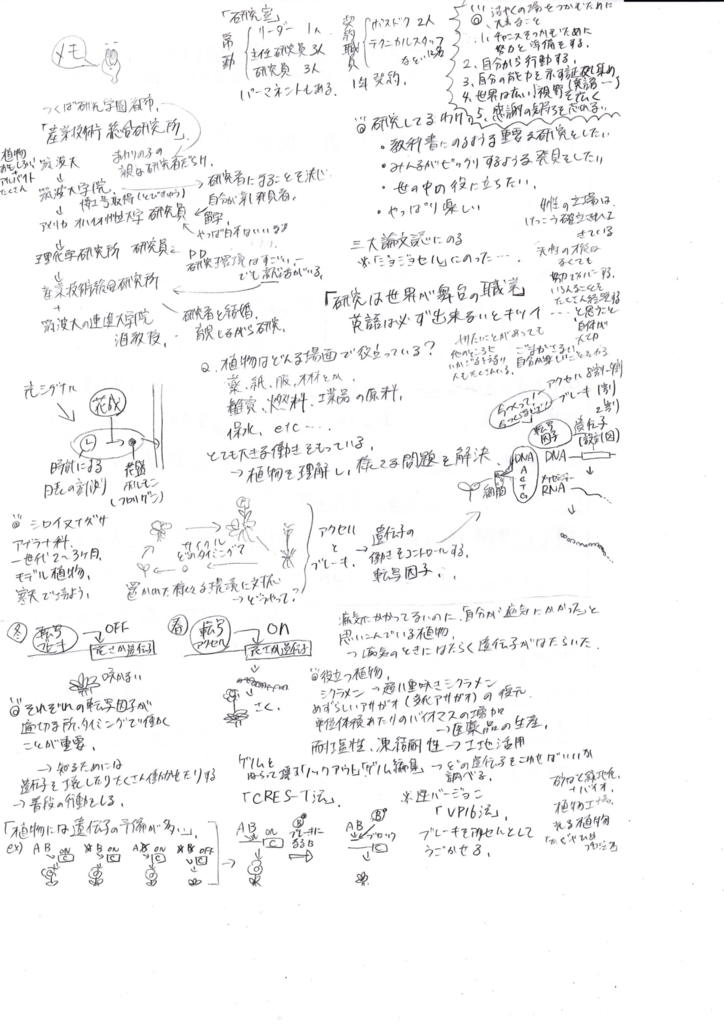 メモ
「研究室」
常勤
リーダー 1人
主任研究員 3人
研究員 3人
パーマネントもある.
契約職員
ポスドク 2人
テクニカルスタッフ
など
1年契約.
活やくの場をつかむために
大事なこと
1. チャンスをつかむために
努力と準備をする.
2. 自分から行動する.
3. 自分の能力を示す証拠集め
4. 世界は広い!視野を広く(英語…)
5. 感謝の気持ちを忘れない
つくば研究学園都市.
「産業技術総合研究所」
植物
おもしろい
アルバイト
たくさん
筑波大
↓
筑波大学院
博士取得(とびきゅう)
研究者になることを決心
自分が第1発見者.
↓
アメリカ オハイオ州立大学 研究員
留学
やっぱ日本いいなぁ
↓
理化学研究所 研究員
研究環境はすごい.
↓
産業技術総合研究所
研究者と結婚.
育児しながら研究.
↓
筑波大の連携大学院
准教授.
研究してるわけ
・教科書にのるような重要な研究をしたい
・みんながビックリするような発見をしたい
・世の中の役に立ちたい.
・やっぱり楽しい
三大論文誌にのる
女性の立場は、
けっこう確立されて
きている
天性の才能は
なくても
努力でカバーする.
いろんなことを
たくさん経験する
…と思うこと
「研究は世界が舞台の職業」
英語は必ず出来るいとキツイ
Q. 植物はどんな場面で役立っている?
薬、紙、服、木材とか.
雑貨、燃料、工業品の原料.
保水、etc….
とても大きな働きをもっている.
→植物を理解し、様々な問題を解決.
光シグナル
花成
時計による
日長の計測
花芽
ホルモン
(フロリゲン)
シロイヌナズナ
アブラナ科.
一世代2〜3ヶ月.
モデル植物.
寒天で育つよう.
サイクル
どのタイミング?
置かれた様々な環境に対応
→どうやって?
アクセル
と
ブレーキ.
→遺伝子の
働きをコントロールする.
転写因子.
アクセル 8割-9割
ブレーキ(1割
2割)
転写
因子
遺伝子
(設計図)
細胞
DNA
A
C
T
G
DNA
メッセンジャー
RNA
冬
転写
ブレーキ
OFF
花さか遺伝子
咲かない
春
転写
アクセル
ON
花さか遺伝子
さく.
それぞれの転写因子が
適切な所、タイミングで働く
ことが重要.
→知るためには
遺伝子を壊したりたくさん働かせたりする
→普段の行動をしる.
病気にかかってないのに、「自分が病気にかかった」と
思いこんでいる植物.
→病気のときにはたらく遺伝子がはたらいた.
役立つ植物.
シクラメン→超八重咲きシクラメン
めずらしいアサガオ(変化アサガオ)の復元.
単位体積あたりのバイオマスの増加
→医薬品の生産.
耐塩性、凍結耐性→土地活用
ゲノムを
ねらって壊す「ノックアウト」「ゲノム編集」→どの遺伝子をこわせばいいか
調べる.
「CRES-T法」.
※逆バージョン
「VP16法」.
ブレーキをアクセルとして
うごかせる.
「植物には遺伝子の予備が多い」
ex)
AB ON
C
B ON
C
A ON
C
OFF
C
→
AB ON
C
ブレーキに
なるB
AB
ブロック
C
砂ばく緑地化
バイオ.
植物工場.
光る植物